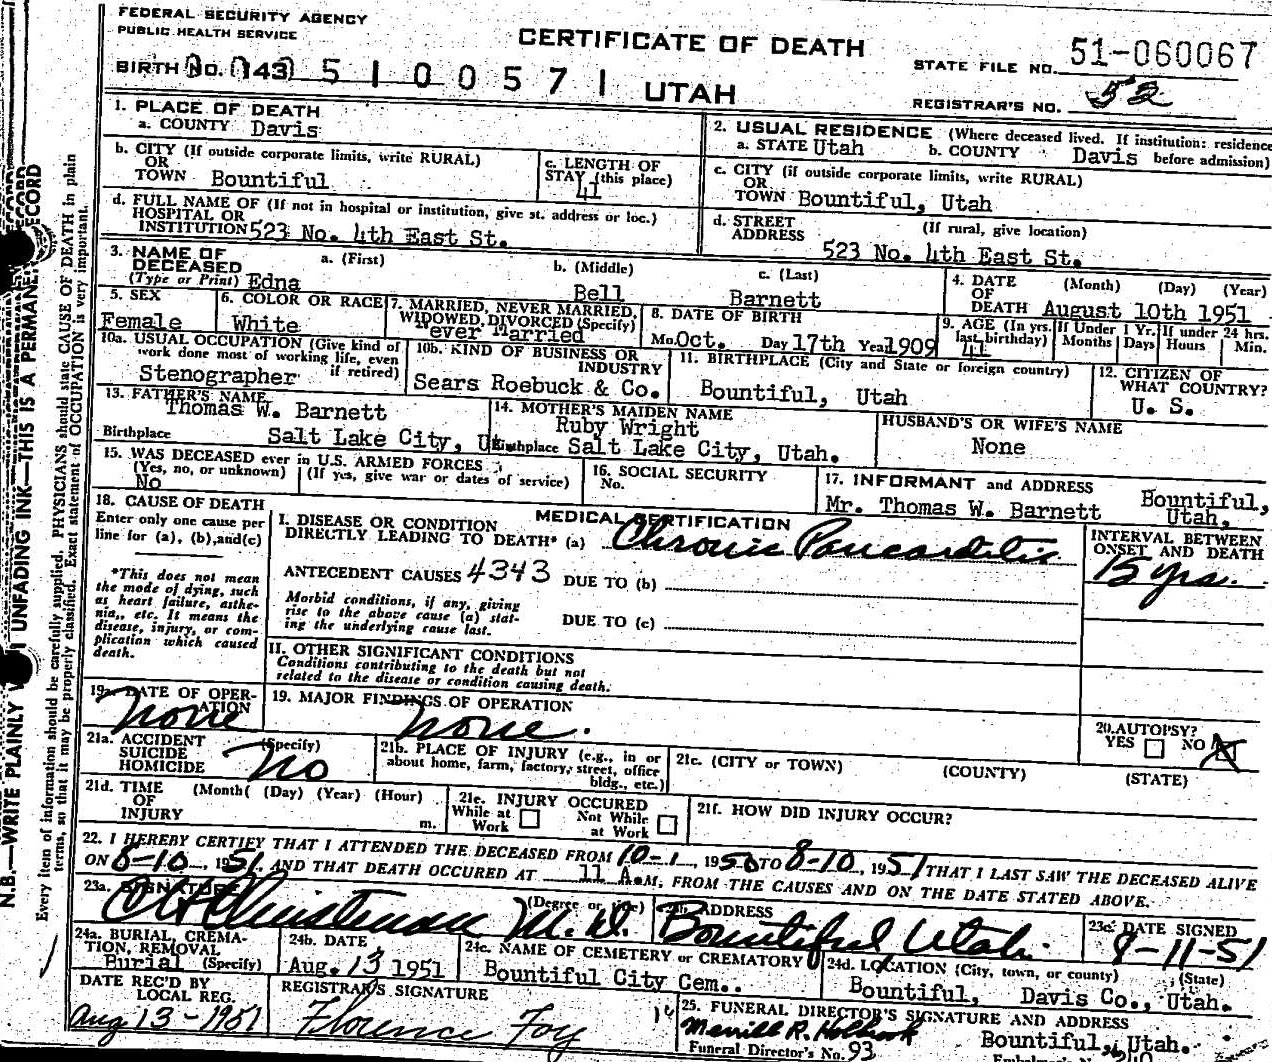 FEDERAL SECURITY AGENCY
PUBLIC HEALTH SERVICE
CERTIFICATE OF DEATH
STATE FILE NO. 51-060067
BIRTH No. 143 5 1 0 0 5 7 1
UTAH
REGISTRAR'S NO. 52
1. PLACE OF DEATH
a. COUNTY Davis
2. USUAL RESIDENCE (Where deceased lived. If institution: residence
a. STATE Utah b. COUNTY Davis before admission)
b. CITY (If outside corporate limits, write RURAL)
OR
TOWN Bountiful
c. LENGTH OF
STAY (this place)
41
c. CITY (if outside corporate limits, write RURAL)
OR
TOWN Bountiful, Utah
d. FULL NAME OF (If not in hospital or institution, give st. address or loc.)
HOSPITAL OR
INSTITUTION 523 No. 4th East St.
d. STREET (If rural, give location)
ADDRESS
523 No. 4th East St.
3. NAME OF
DECEASED
(Type or Print)
a. (First) Edna
b. (Middle) Bell
c. (Last) Barnett
4. DATE (Month) (Day) (Year)
OF
DEATH August 10th 1951
5. SEX
Female
6. COLOR OR RACE
White
7. MARRIED, NEVER MARRIED,
WIDOWED, DIVORCED (Specify)
ever Married
8. DATE OF BIRTH
Mo. Oct. Day 17th Year 1909
9. AGE (In yrs. last birthday) 41
If Under 1 Yr. Months Days
If under 24 hrs. Hours Min.
10a. USUAL OCCUPATION (Give kind of
work done most of working life, even
if retired)
Stenographer
10b. KIND OF BUSINESS OR
INDUSTRY
Sears Roebuck & Co.
11. BIRTHPLACE (City and State or foreign country)
Bountiful, Utah
12. CITIZEN OF
WHAT COUNTRY?
U. S.
13. FATHER'S NAME
Thomas W. Barnett
Birthplace Salt Lake City, U
14. MOTHER'S MAIDEN NAME
Ruby Wright
Birthplace Salt Lake City, Utah.
HUSBAND'S OR WIFE'S NAME
None
15. WAS DECEASED ever in U.S. ARMED FORCES
(Yes, no, or unknown) (If yes, give war or dates of service)
No
16. SOCIAL SECURITY
No.
17. INFORMANT and ADDRESS
Mr. Thomas W. Barnett Bountiful,
Utah,
18. CAUSE OF DEATH
Enter only one cause per
line for (a), (b), and (c)
*This does not mean
the mode of dying, such
as heart failure, asthe-
nia, etc. It means the
disease, injury, or com-
plication which caused
death.
MEDICAL CERTIFICATION
I. DISEASE OR CONDITION
DIRECTLY LEADING TO DEATH* (a) Chronic Pancarditis
INTERVAL BETWEEN
ONSET AND DEATH
15 yrs.
ANTECEDENT CAUSES 4343 DUE TO (b)
Morbid conditions, if any, giving
rise to the above cause (a) stat-
ing the underlying cause last.
DUE TO (c)
II. OTHER SIGNIFICANT CONDITIONS
Conditions contributing to the death but not
related to the disease or condition causing death.
19a. DATE OF OPER-
ATION
none
19. MAJOR FINDINGS OF OPERATION
none.
20. AUTOPSY?
YES NO X
21a. ACCIDENT (Specify)
SUICIDE
HOMICIDE
no
21b. PLACE OF INJURY (e.g., in or
about home, farm, factory, street, office
bldg., etc.)
21c. (CITY or TOWN) (COUNTY) (STATE)
21d. TIME (Month) (Day) (Year) (Hour)
OF
INJURY m.
21e. INJURY OCCURED
While at Work
Not While at Work
21f. HOW DID INJURY OCCUR?
22. I HEREBY CERTIFY THAT I ATTENDED THE DECEASED FROM 10-1, 1950 TO 8-10, 1951 THAT I LAST SAW THE DECEASED ALIVE
ON 8-10, 1951, AND THAT DEATH OCCURED AT 11 A.M, FROM THE CAUSES AND ON THE DATE STATED ABOVE.
23a. SIGNATURE (Degree or title)
M.D.
23b. ADDRESS
Bountiful Utah.
23c. DATE SIGNED
8-11-51
24a. BURIAL, CREMA-
TION, REMOVAL
Burial (Specify)
24b. DATE
Aug. 13 1951
24c. NAME OF CEMETERY or CREMATORY
Bountiful City Cem..
24d. LOCATION (City, town, or county) (State)
Bountiful, Davis Co., Utah.
DATE REC'D BY
LOCAL REG.
Aug 13-1951
REGISTRAR'S SIGNATURE
Florence Foy
25. FUNERAL DIRECTOR'S SIGNATURE AND ADDRESS
Merrill R. Holbrook Bountiful, Utah.
Funeral Director's No. 93
N.B.—WRITE PLAINLY UNFADING INK—THIS IS A PERMANENT RECORD
Every item of information should be carefully supplied. PHYSICIANS should state CAUSE OF DEATH in plain
terms, so that it may be properly classified. Exact statement of OCCUPATION is very important.